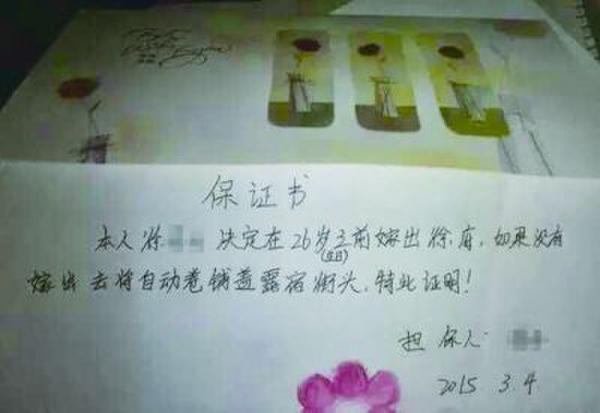 保证书
本人徐 决定在26岁之前嫁出徐府，如果没有
(生日)
嫁出去将自动卷铺盖露宿街头，特此证明！
担保人：
2015 3.4